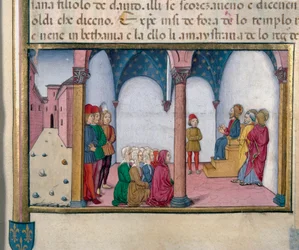 iana filiolo de dauito. illi se scorezaueno e diceuen
oldi che diceno. Et xpe insi de fora de lo templo
e uene in bethania e la ello li amaystraua de lo reg de